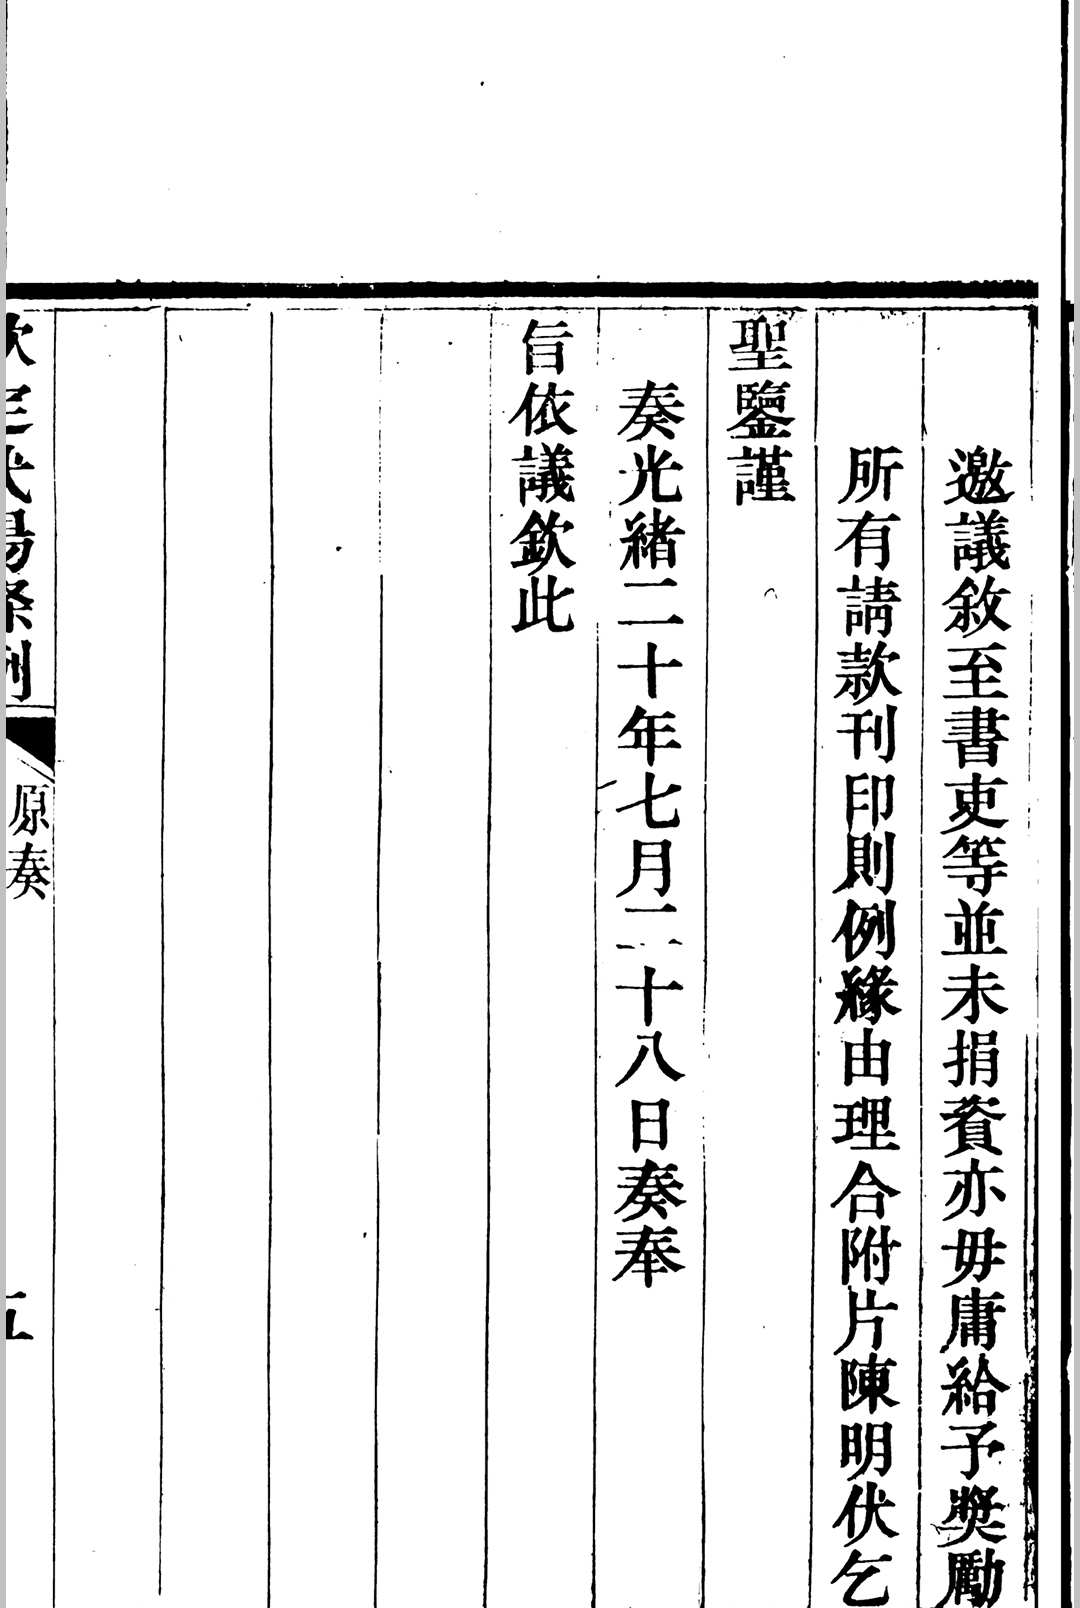 邀議敘至書吏等並未捐貲亦毋庸給予獎勵
所有請款刊印則例緣由理合附片陳明伏乞
聖鑒謹
奏光緒二十年七月二十八日奏奉
旨依議欽此
欽定武場條例
原奏
五